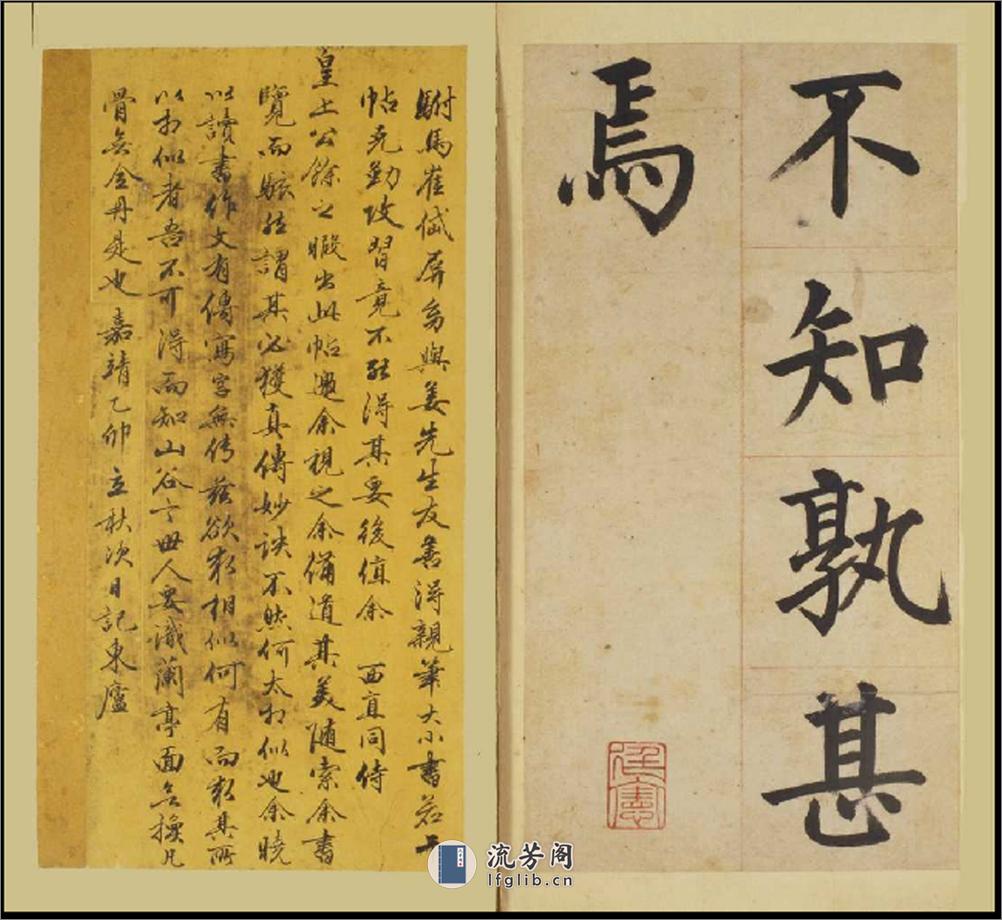 不知孰甚
焉
廷憲
駙馬崔岱屏身與姜先生友善得親筆大小書若干
帖克勤改習竟不能得其要後值余 西直同侍
皇上公餘之暇出此帖邀余視之余備道其美隨索余書
覽而駭然謂其必獲真傳妙訣不然何太相似也余曉
以讀書作文有傳寫字無傳茲欲求相似何有而求其所
以相似者吾不可得而知山谷云世人要識蘭亭面無換凡
骨無金丹是也 嘉靖乙卯立秋次日記東廬
流芳阁
lfglib.cn